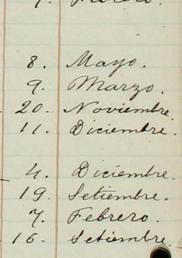 7. Febrero.
8. Mayo.
9. Marzo.
20. Noviembre.
11. Diciembre.
4. Diciembre.
19. Setiembre.
7. Febrero.
16. Setiembre.